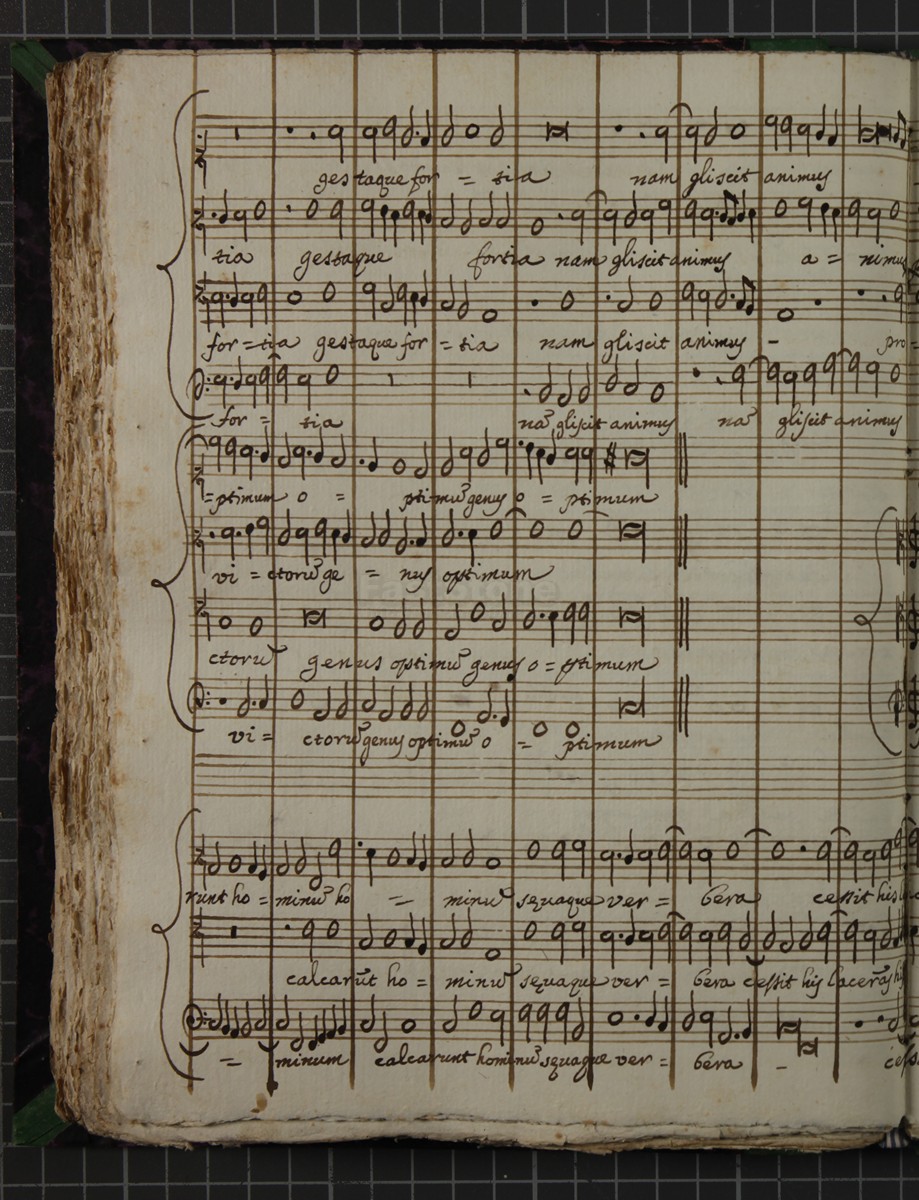 gestaque for = tia nam gliscit animus
tia gestaque fortia nam gliscit animus a = nimus
for = tia gestaque for = tia nam gliscit animus - pro =
for = tia nã gliscit animus nã gliscit animus
= ptimum o = ptimũ genus o = ptimum
vi = ctorũ ge = nus optimum
ctorũ genus optimũ genus o = ptimum
vi = ctorũ genus optimũ o = ptimum
runt ho = minũ ho = minũ sęvaque ver = bera cessit his
calcarũt ho = minũ sęvaque ver = bera cessit his lacerãs his
= minum calcarunt hominũ sęvaque ver = bera -